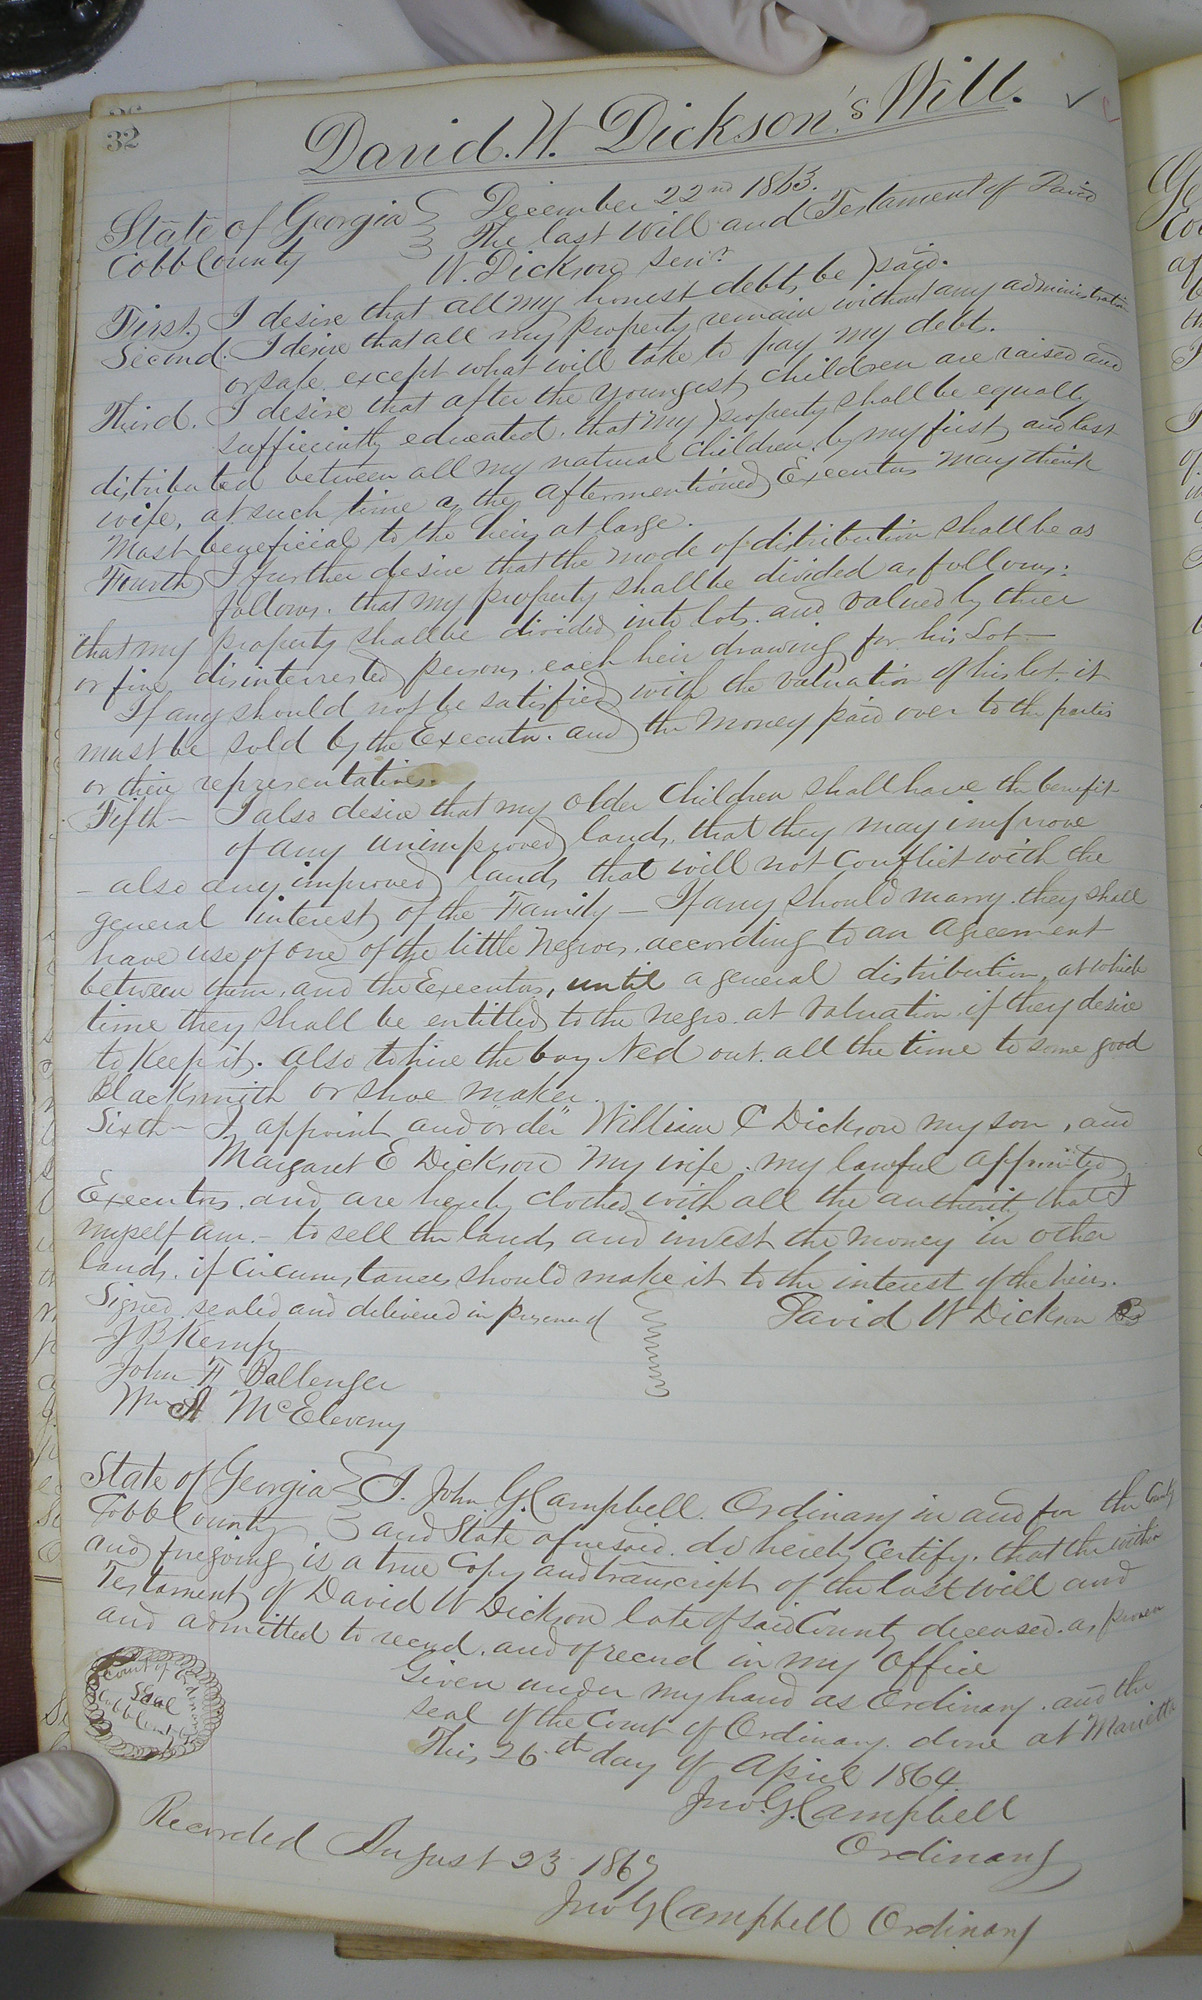 32
David. W. Dickson's Will.
State of Georgia } December 22nd 1863.
Cobb County } The last Will and Testament of David
W. Dickson Senr.
First, I desire that all my honest debts be paid.
Second. I desire that all my property remain without any administration
or sale. except what will take to pay my debt.
Third. I desire that after the youngest children are raised and
sufficiently educated, that my property shall be equally
distributed between all my natural children by my first and last
wife, at such time as the aftermentioned Executors may think
Most beneficial to the heirs at large.
Fourth I further desire that the mode of distribution shall be as
follows. that my property shall be divided as follows:
"that my property shall be divided into lots. and valued by three
or five disinterested persons. each heir drawing for his Lot —
If any should not be satisfied with the valuation of his lot. it
must be sold by the Executor. and the money paid over to the parties
or their representatives.
Fifth — I also desire that my older children shall have the benefit
of any unimproved lands, that they may improve
— also any improved lands that will not conflict with the
general interest of the Family — If any should marry. they shall
have use of one of the little negroes. according to an agreement
between them, and the Executors, until a general distribution, at which
time they shall be entitled to the negro. at valuation. if they desire
to keep it. also to hire the boy Ned out. all the time to some good
Blacksmith or shoe maker.
Sixth — I appoint and "order" William C Dickson my son, and
Margaret E Dickson my wife. my lawful appointed
Executors. and are hereby clothed with all the authority that I
myself am. — to sell the lands and invest the money in other
lands. if circumstances should make it to the interest of the heirs.
Signed sealed and delivered in presence of } David W Dickson
J B Kemp
John F Ballenger
Wm A McEleveny
State of Georgia } I. John. G. Campbell. Ordinary in and for the County
Cobb County } and State aforesaid. do hereby Certify. that the within
and foregoing is a true Copy and transcript of the last will and
Testament of David W Dickson late of said County deceased. as proven
and admitted to record. and of record in my office
Given under my hand as Ordinary. and the
seal of the Court of Ordinary. done at Marietta
This 26th day of April 1864.
Jno. G. Campbell
Ordinary
Court of Ordinary
Seal
Cobb County
Recorded August 23 1867
Jno G Campbell Ordinary